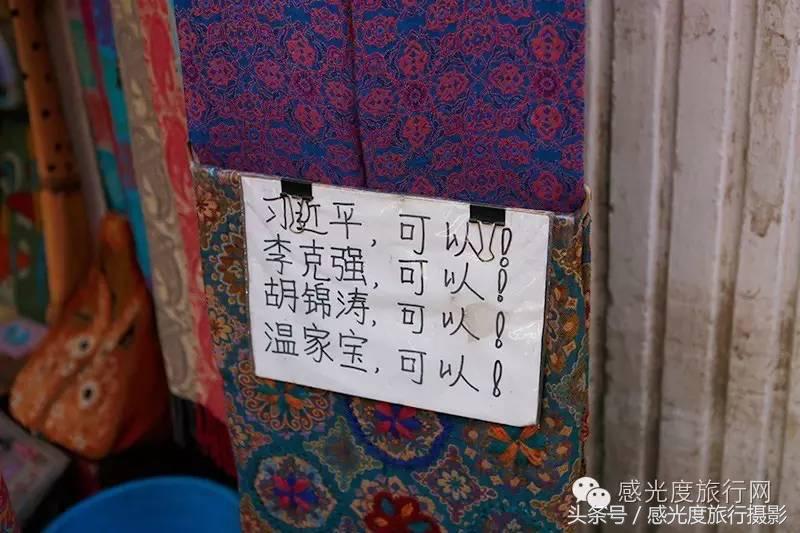 习近平，可以！
李克强，可以！
胡锦涛，可以！
温家宝，可以！
感光度旅行网
头条号 / 感光度旅行摄影